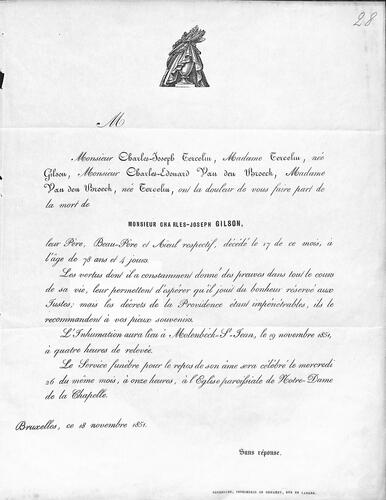 28
M
Monsieur Charles-Joseph Tercelin, Madame Tercelin, née
Gilson, Monsieur Charles-Edouard Van den Broeck, Madame
Van den Broeck, née Tercelin, ont la douleur de vous faire part de
la mort de
MONSIEUR CHARLES-JOSEPH GILSON,
leur Père, Beau-Père et Aïeul respectif, décédé le 17 de ce mois, à
l'âge de 78 ans et 4 jours.
Les vertus dont il a constamment donné des preuves dans tout le cours
de sa vie, leur permettent d'espérer qu'il jouit du bonheur réservé aux
Justes; mais les décrets de la Providence étant impénétrables, ils le
recommandent à vos pieux souvenirs.
L'Inhumation aura lieu à Molenbeck-St-Jean, le 19 novembre 1851,
à quatre heures de relevée.
Le Service funèbre pour le repos de son âme sera célébré le mercredi
26 du même mois, à onze heures, à l'Eglise paroissiale de Notre-Dame
de la Chapelle.
Bruxelles, ce 18 novembre 1851.
Sans réponse.
IMPRIMERIE DE